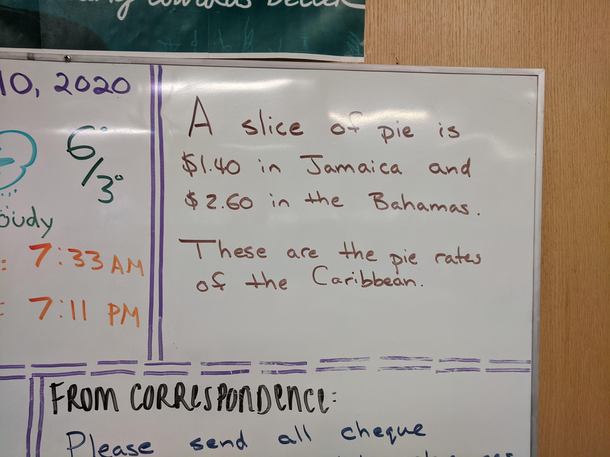 towards better
10, 2020
6°/3°
7:33 AM
7:11 PM
A slice of pie is
$1.40 in Jamaica and
$2.60 in the Bahamas.
These are the pie rates
of the Caribbean.
FROM CORRESPONDENCE:
Please send all cheque